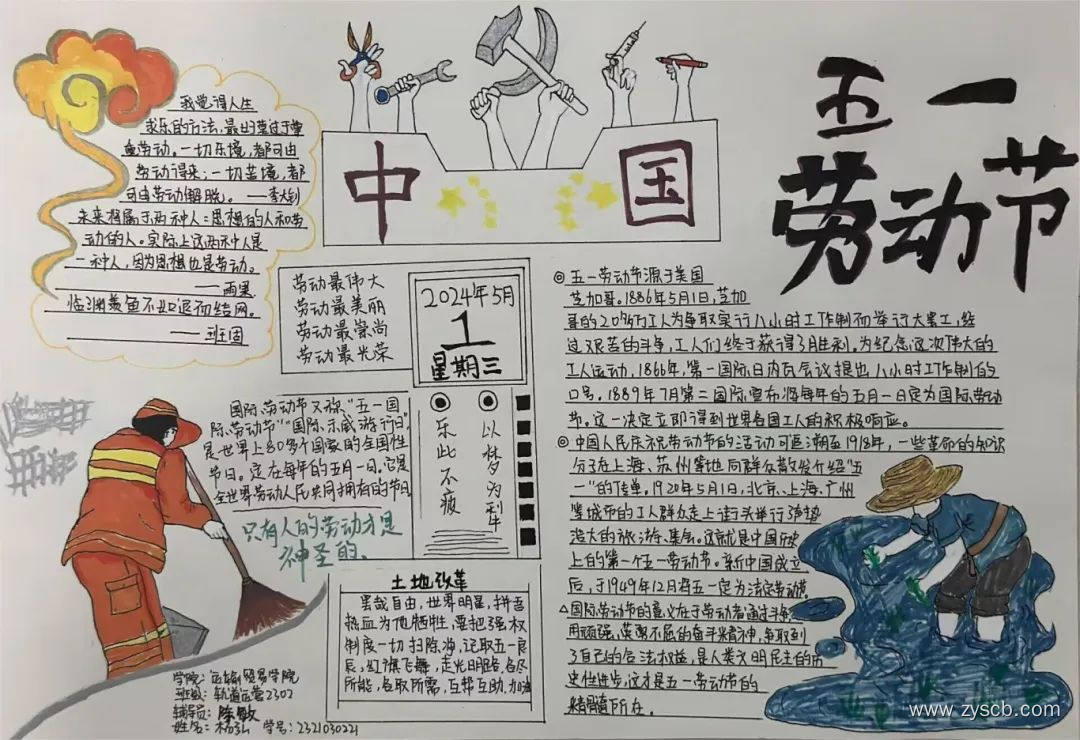 五一
劳动节
中国
我觉得人生
求乐的方法，最好莫过于尊
重劳动。一切乐境，都可由
劳动得来；一切苦境，都
可由劳动解脱。——李大钊
未来将属于两种人：思想的人和劳
动的人。实际上这两种人是
一种人，因为思想也是劳动。
——雨果
临渊羡鱼不如退而结网。
——班固
劳动最伟大
劳动最美丽
劳动最崇尚
劳动最光荣
2024年5月
1
星期三
乐此不疲
以梦为犁
国际劳动节又称“五一国
际劳动节”“国际示威游行日”
是世界上80多个国家的全国性
节日。定在每年的五月一日。它是
全世界劳动人民共同拥有的节日
只有人的劳动才是
神圣的。
土地改革
美哉自由，世界明星，拼吾
热血为他牺牲，要把强权
制度一切扫除净，记取五一良
辰，红旗飞舞，走光明路，各尽
所能，各取所需，互帮互助，力
学院：运输贸易学院
班级：轨道运营2302
辅导员：陈敏
姓名：杨弘 学号：2321030221
◎五一劳动节源于美国
芝加哥。1886年5月1日，芝加
哥的20多万工人为争取实行八小时工作制而举行大罢工，经
过艰苦的斗争，工人们终于获得了胜利。为纪念这次伟大的
工人运动，1866年，第一国际日内瓦会议提出八小时工作制的
口号。1889年7月第二国际宣布将每年的五月一日定为国际劳动
节。这一决定立即得到世界各国工人的积极响应。
◎中国人民庆祝劳动节的活动可追溯至1918年，一些革命的知识
分子在上海、苏州等地向群众散发介绍“五
一”的传单。1920年5月1日，北京、上海、广州
等城市的工人群众走上街头举行了声势
浩大的旅游、集会。这就是中国历史
上的第一个五一劳动节。新中国成立
后，于1949年12月将五一定为法定劳动节
△国际劳动节的意义在于劳动者通过斗争，
用顽强、英勇不屈的奋斗精神，争取到
了自己的合法权益，是人类文明民主的历
史性进步，这才是五一劳动节的
精髓所在。
www.zyscb.com